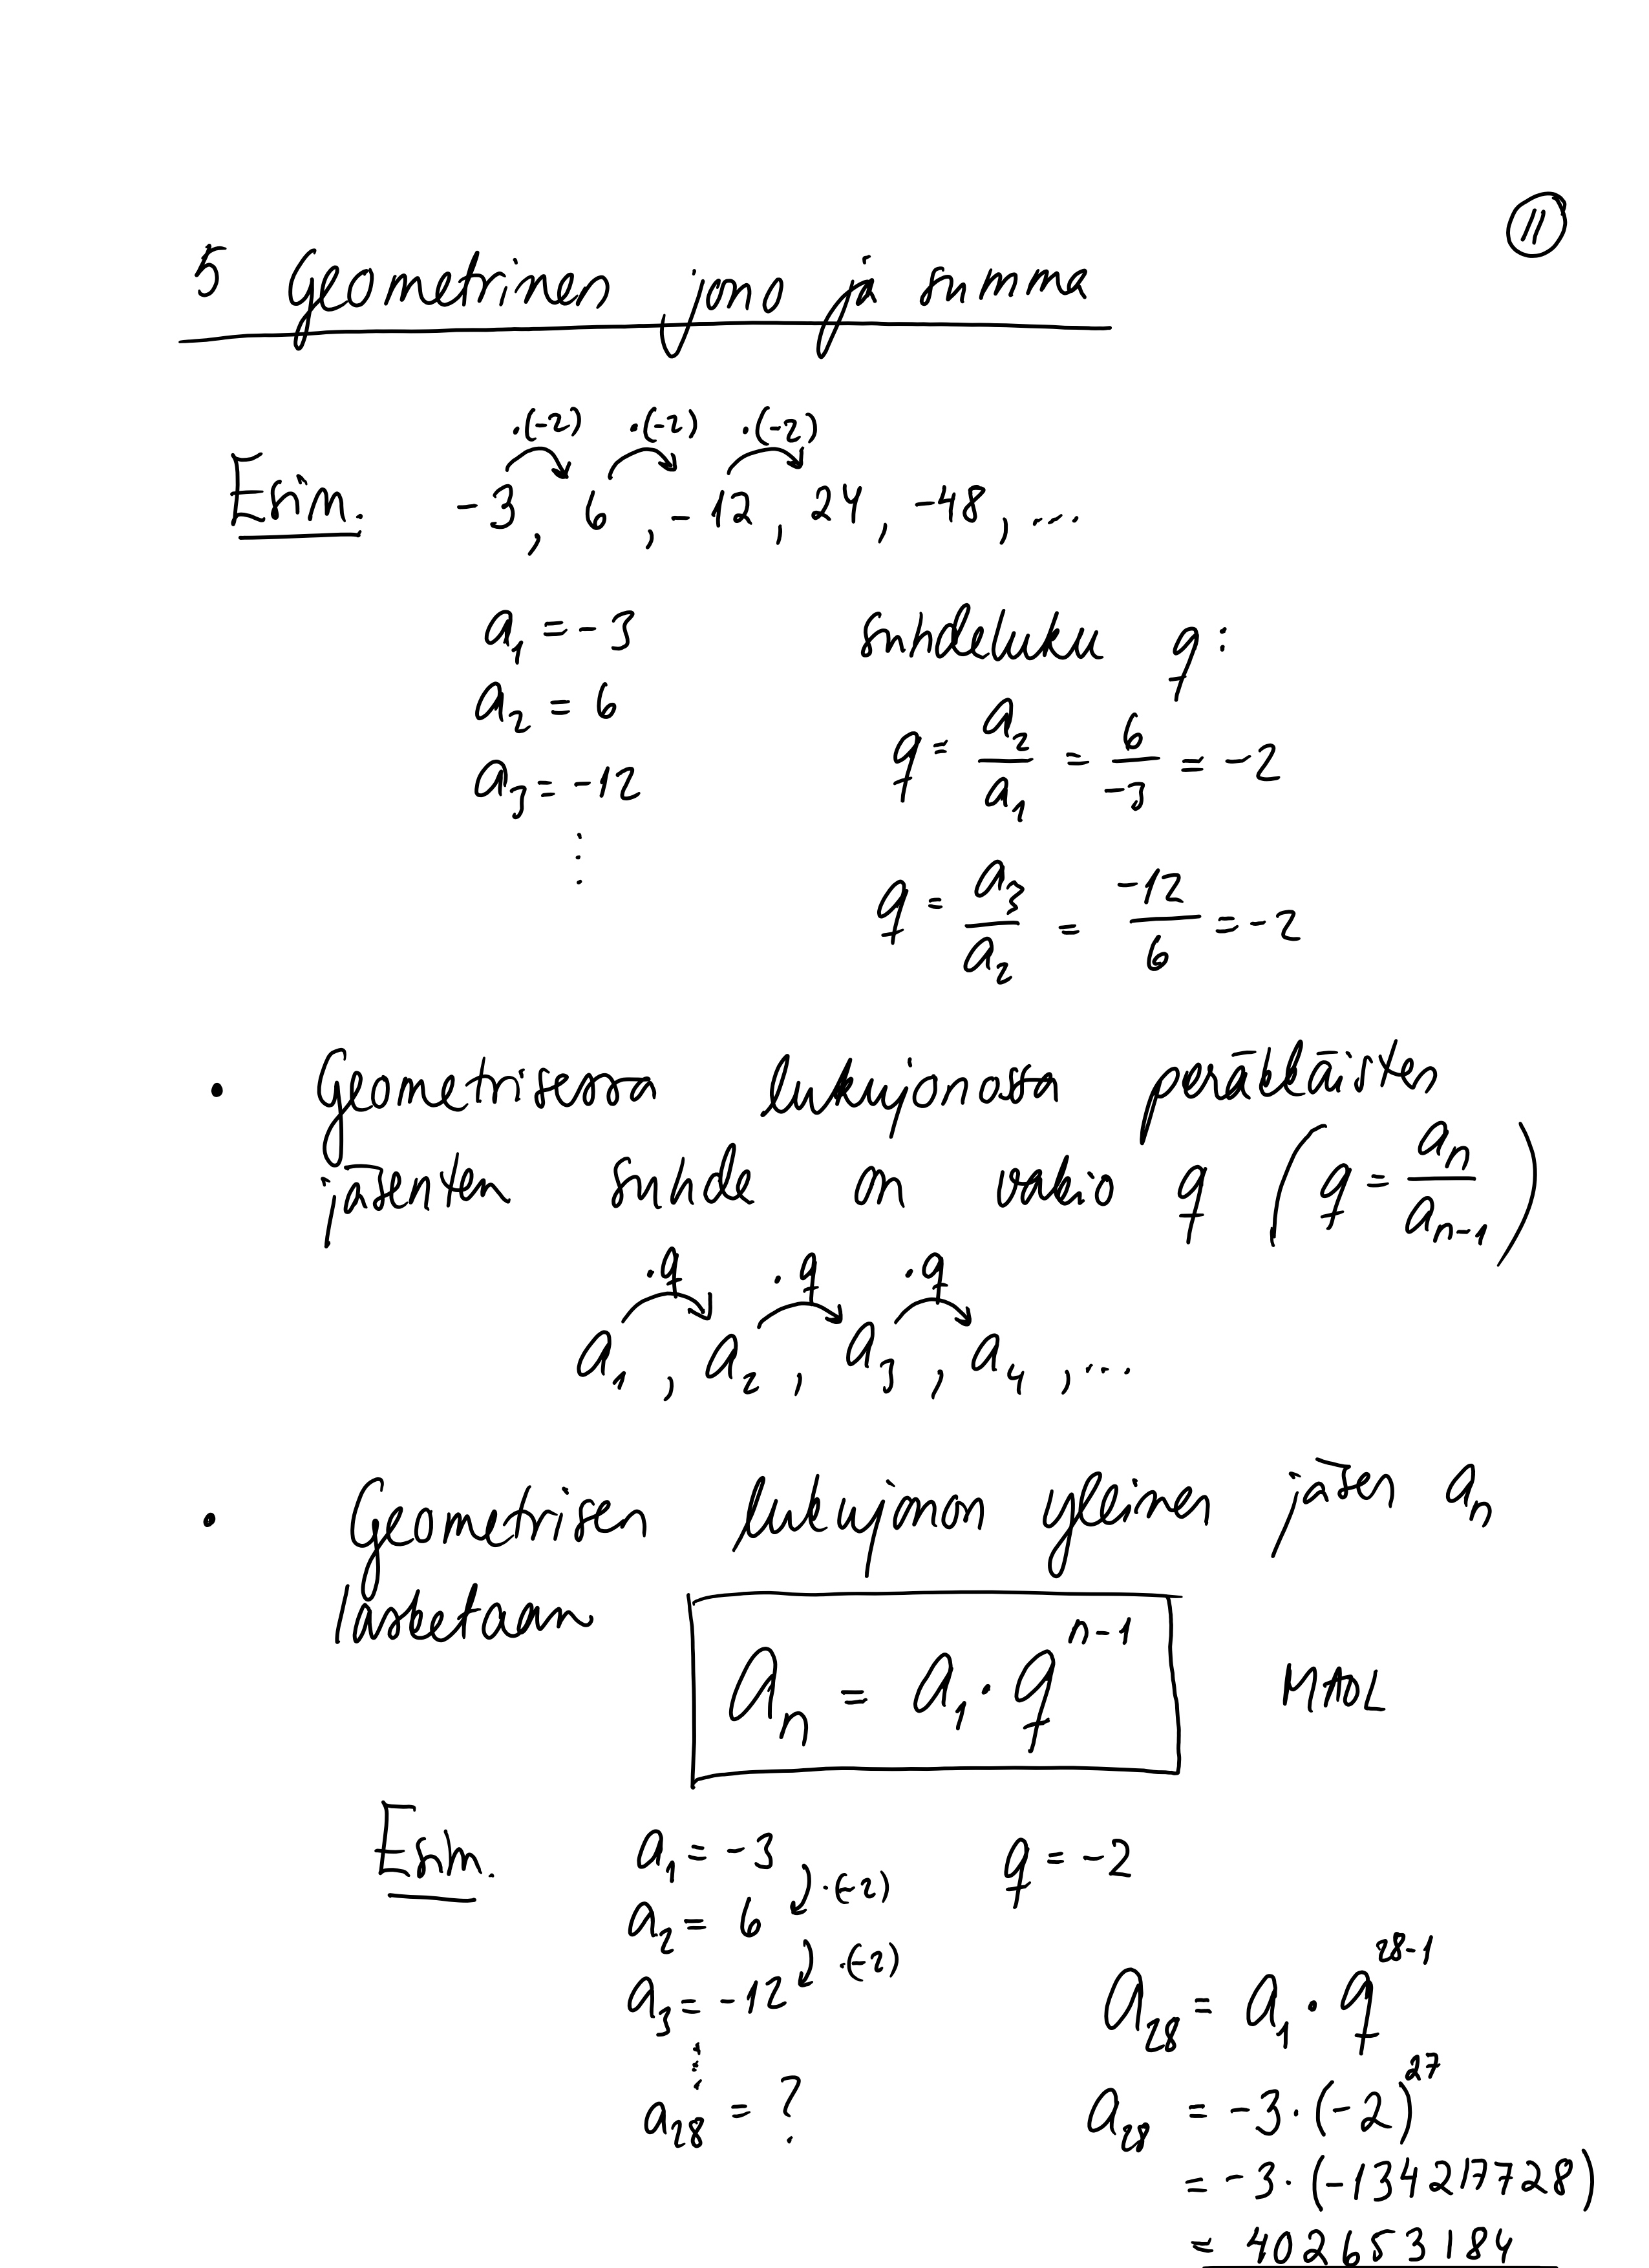 11
5 Geometrinen jono ja summa
·(-2) ·(-2) ·(-2)
Esim. -3, 6, -12, 24, -48, ...
a₁ = -3 suhdeluku q:
a₂ = 6
q = a₂/a₁ = 6/-3 = -2
a₃ = -12
⋮
q = a₃/a₂ = -12/6 = -2
• Geometrisessa lukujonossa peräkkäisten
jäsenten suhde on vakio q (q = aₙ/aₙ₋₁)
·q ·q ·q
a₁, a₂, a₃, a₄, ...
• Geometrisen lukujonon yleinen jäsen aₙ
lasketaan aₙ = a₁ · qⁿ⁻¹ MAOL
Esim. a₁ = -3 q = -2
·(-2)
a₂ = 6
·(-2)
a₃ = -12
⋮
a₂₈ = ?
a₂₈ = a₁ · q²⁸⁻¹
a₂₈ = -3 · (-2)²⁷
= -3 · (-134217728)
= 402653184